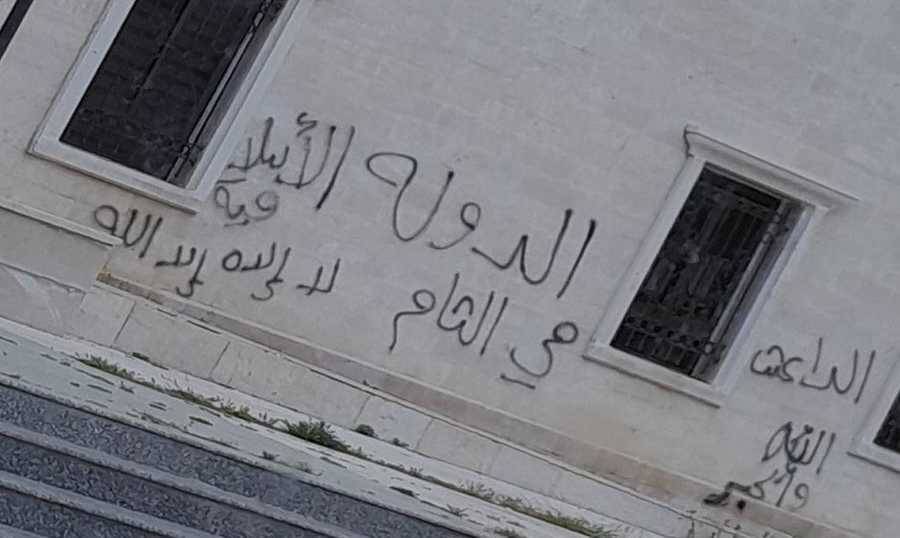 الدوله الأيلا
فيه
في الشام
لا إلاه إلا الله
الداعش
الله
وأكبر